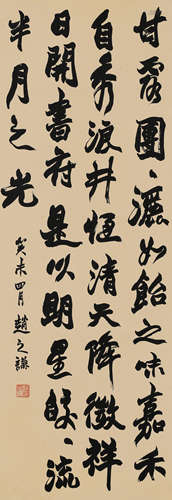 甘露團、灑如飴之味嘉禾
自秀浪井恒清天降徵祥
日開書府是以明星皎、流
半月之光
癸未四月趙之謙